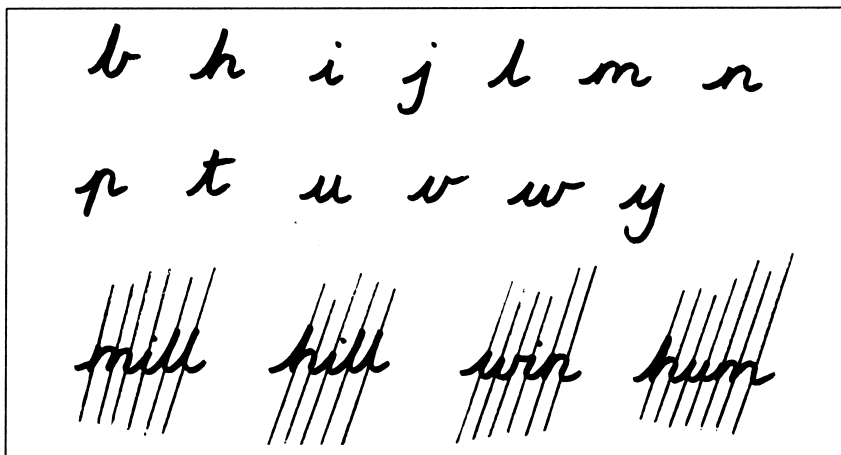 b h i j l m n
p t u v w y
mill hill win hum